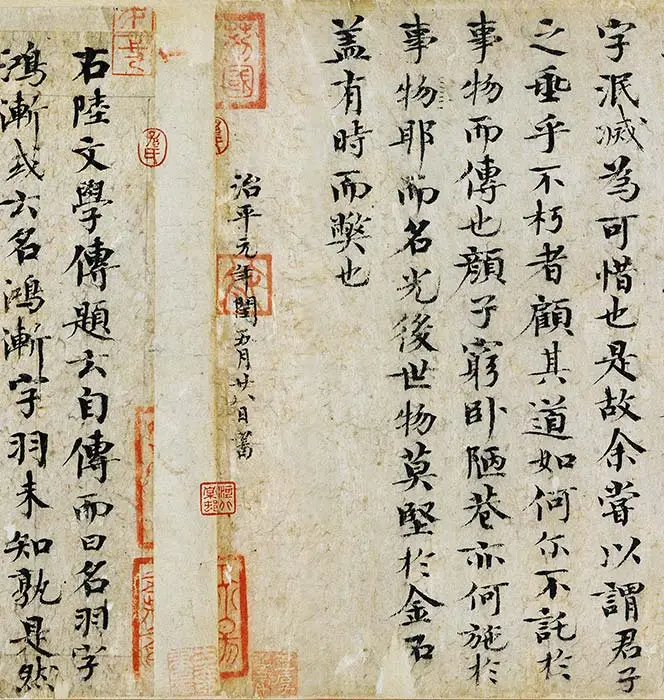 字泯滅為可惜也是故余嘗以謂君子
之垂乎不朽者顧其道如何尓不託於
事物而傳也顏子窮卧陋巷亦何施於
事物耶而名光後世物莫堅於金石
盖有時而獘也
治平元年閏五月廿八日書
右陸文學傳題云自傳而曰名羽字
鴻漸或云名鴻漸字羽未知孰是然